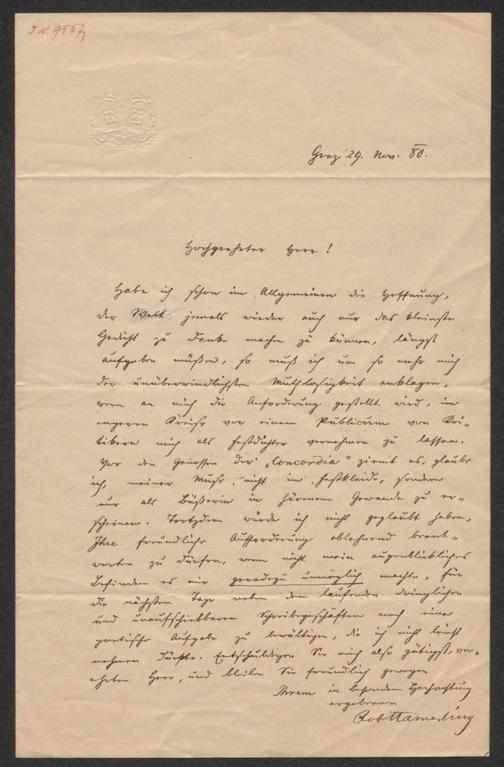 I.N. 9557
Graz 29. Nov. 80.
Hochgeehrter Herr!
Habe ich schon im Allgemeinen die Hoffnung,
der Welt jemals wieder auch nur das kleinste
Gedicht zu Danke machen zu können, längst
aufgeben müßen, so muß ich um so mehr mich
der unüberwindlichsten Muthlosigkeit anklagen,
wenn an mich die Anforderung gestellt wird, im
engeren Kreise vor einem Publicum von Kri-
tikern mich als Festdichter vernehmen zu lassen.
Vor den Genossen der „Concordia" ziemt es, glaube
ich, meiner Muse, nicht im Festkleide, sondern
nur als Büßerin in härenem Gewande zu er-
scheinen. Trotzdem würde ich nicht geglaubt haben,
Ihre freundliche Aufforderung ablehnend beant-
worten zu dürfen, wenn nicht mein augenblickliches
Befinden es mir geradezu unmöglich machte, für
die nächsten Tage neben den laufenden dringlichen
und unaufschiebbaren Schreibegeschäften noch eine
poetische Aufgabe zu bewältigen, die ich nicht leicht
nehmen dürfte. Entschuldigen Sie mich also gütigst, ver-
ehrter Herr, und bleiben Sie freundlich gewogen
Ihrem in besonderer Hochachtung
ergebenen
Rob Hamerling